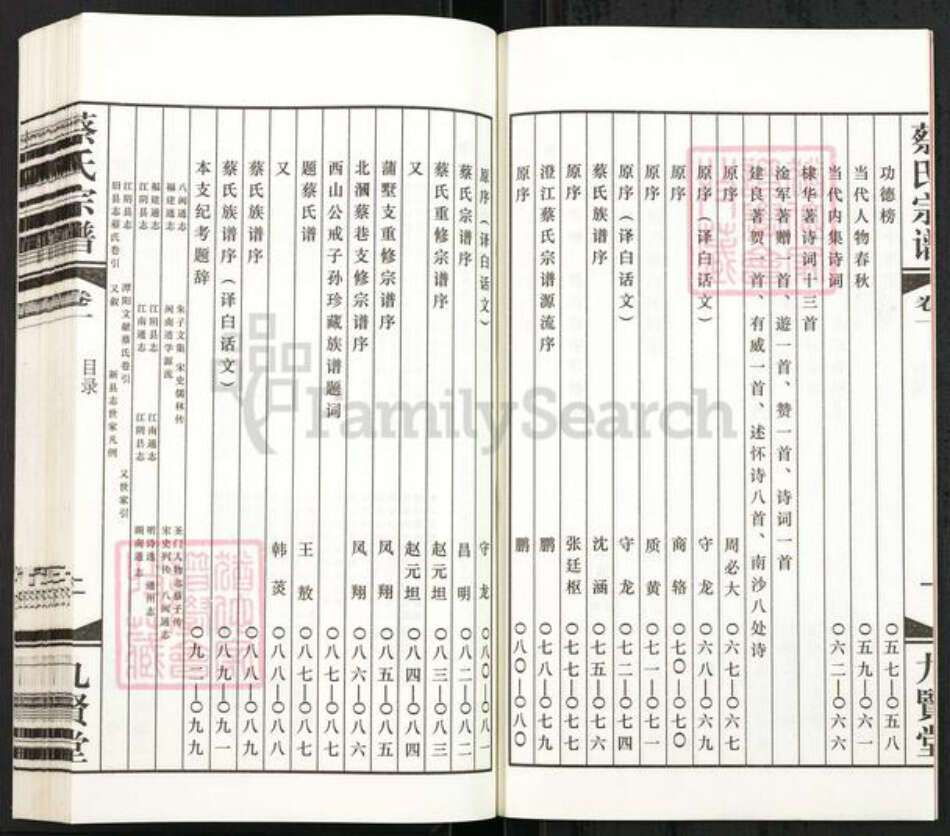 蔡氏宗谱 卷一 九賢堂
功德榜 〇五七—〇五八
当代人物春秋 〇五九—〇六一
当代内集诗词 〇六二—〇六六
棣华著诗词十三首
淦军著赠一首、遊一首、赞一首、诗词一首
建良著贺一首、有威一首、述怀诗八首、南沙八处诗
原序 周必大 〇六七—〇六七
原序（译白话文） 守龙 〇六八—〇六九
原序 商辂 〇七〇—〇七〇
原序 质黄 〇七一—〇七一
原序（译白话文） 守龙 〇七二—〇七四
蔡氏族谱序 沈涵 〇七五—〇七六
原序 张廷枢 〇七七—〇七七
澄江蔡氏宗谱源流序 鹏 〇七八—〇七九
原序 鹏 〇八〇—〇八〇
原序（译白话文） 守龙 〇八〇—〇八一
蔡氏宗谱序 昌明 〇八二—〇八二
蔡氏重修宗谱序 赵元坦 〇八三—〇八三
又 赵元坦 〇八四—〇八四
蒲墅支重修宗谱序 凤翔 〇八五—〇八五
北漍蔡巷支修宗谱序 凤翔 〇八六—〇八六
西山公戒子孙珍藏族谱题词
题蔡氏谱 王敖 〇八七—〇八七
又 韩菼 〇八八—〇八八
蔡氏族谱序 〇八九—〇八九
蔡氏族谱序（译白话文） 〇九〇—〇九一
本支纪考题辞 〇九二—〇九九
八闽通志 朱子文集 宋史儒林传 圣门人物志蔡子传
福建通志 闽南道学源流 宋史列传 八闽通志
福建通志 江阴县志 江南通志 明诗选 通州志
江阴县志 江南通志 江阴县志 湖南通志
江阴县志 潭阳文献蔡氏卷引 又世家引
旧县志蔡氏卷引 又叙 新县志世家凡例
蔡氏宗谱 卷一 目录 九賢堂